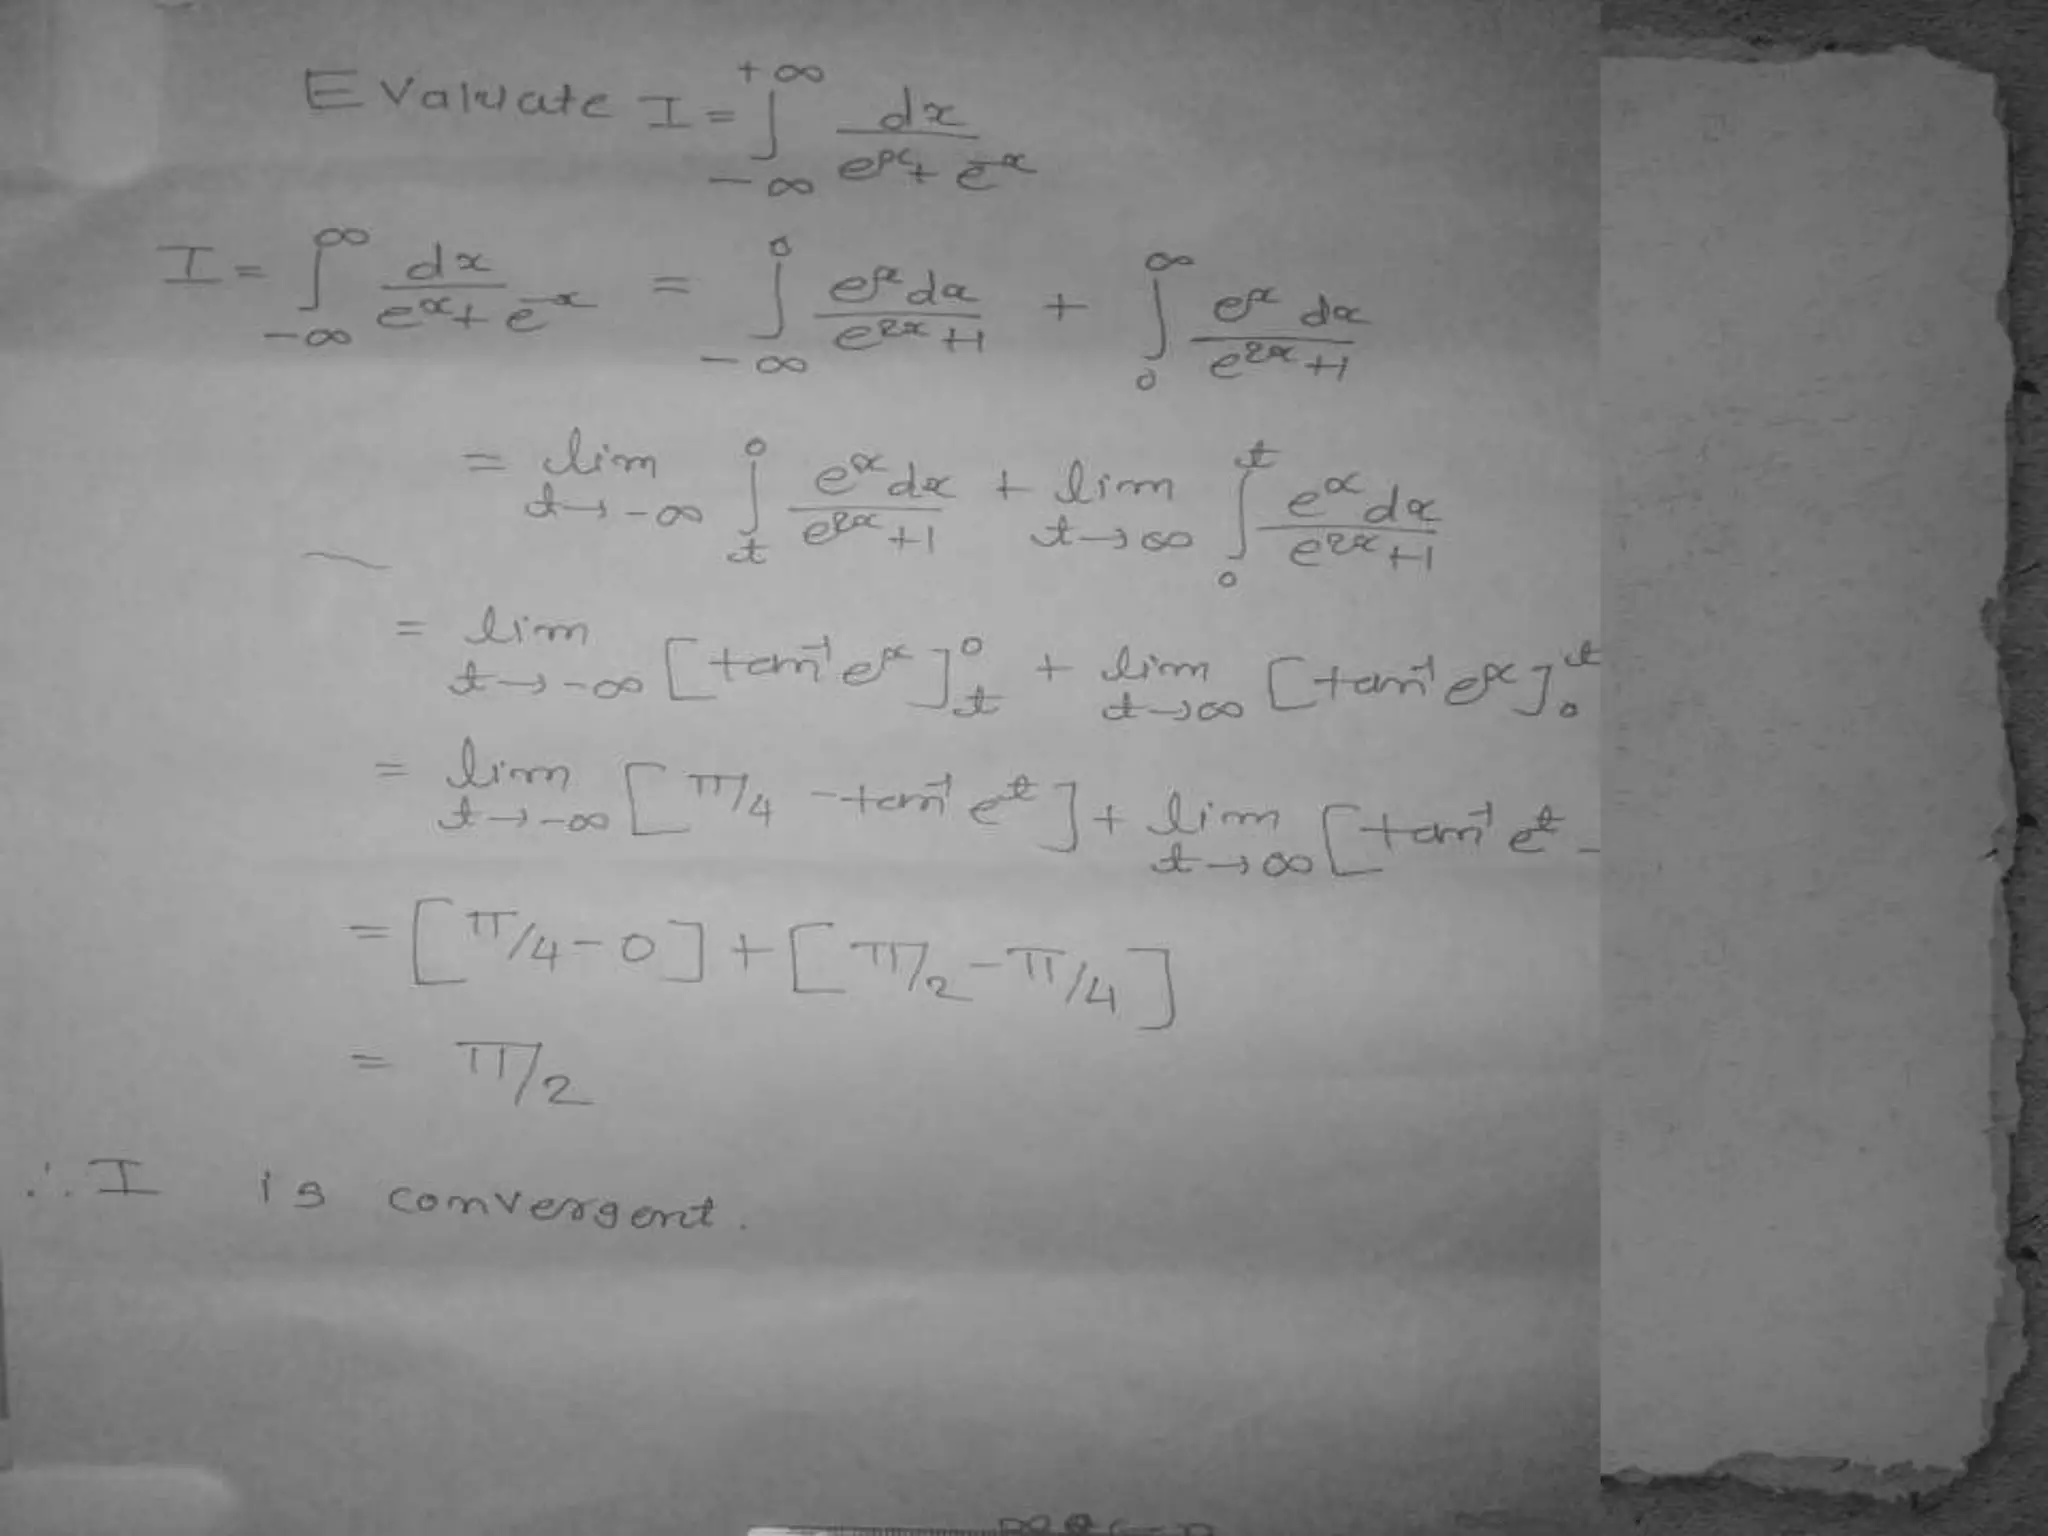 Evaluate I = ∫_{-∞}^{+∞} dx / (e^x + e^{-x})
I = ∫_{-∞}^{∞} dx / (e^x + e^{-x}) = ∫_{-∞}^{0} e^x dx / (e^{2x} + 1) + ∫_{0}^{∞} e^x dx / (e^{2x} + 1)
= lim_{t→-∞} ∫_{t}^{0} e^x dx / (e^{2x} + 1) + lim_{t→∞} ∫_{0}^{t} e^x dx / (e^{2x} + 1)
= lim_{t→-∞} [tan^{-1} e^x]_{t}^{0} + lim_{t→∞} [tan^{-1} e^x]_{0}^{t}
= lim_{t→-∞} [π/4 - tan^{-1} e^t] + lim_{t→∞} [tan^{-1} e^t -
= [π/4 - 0] + [π/2 - π/4]
= π/2
∴ I is convergent.